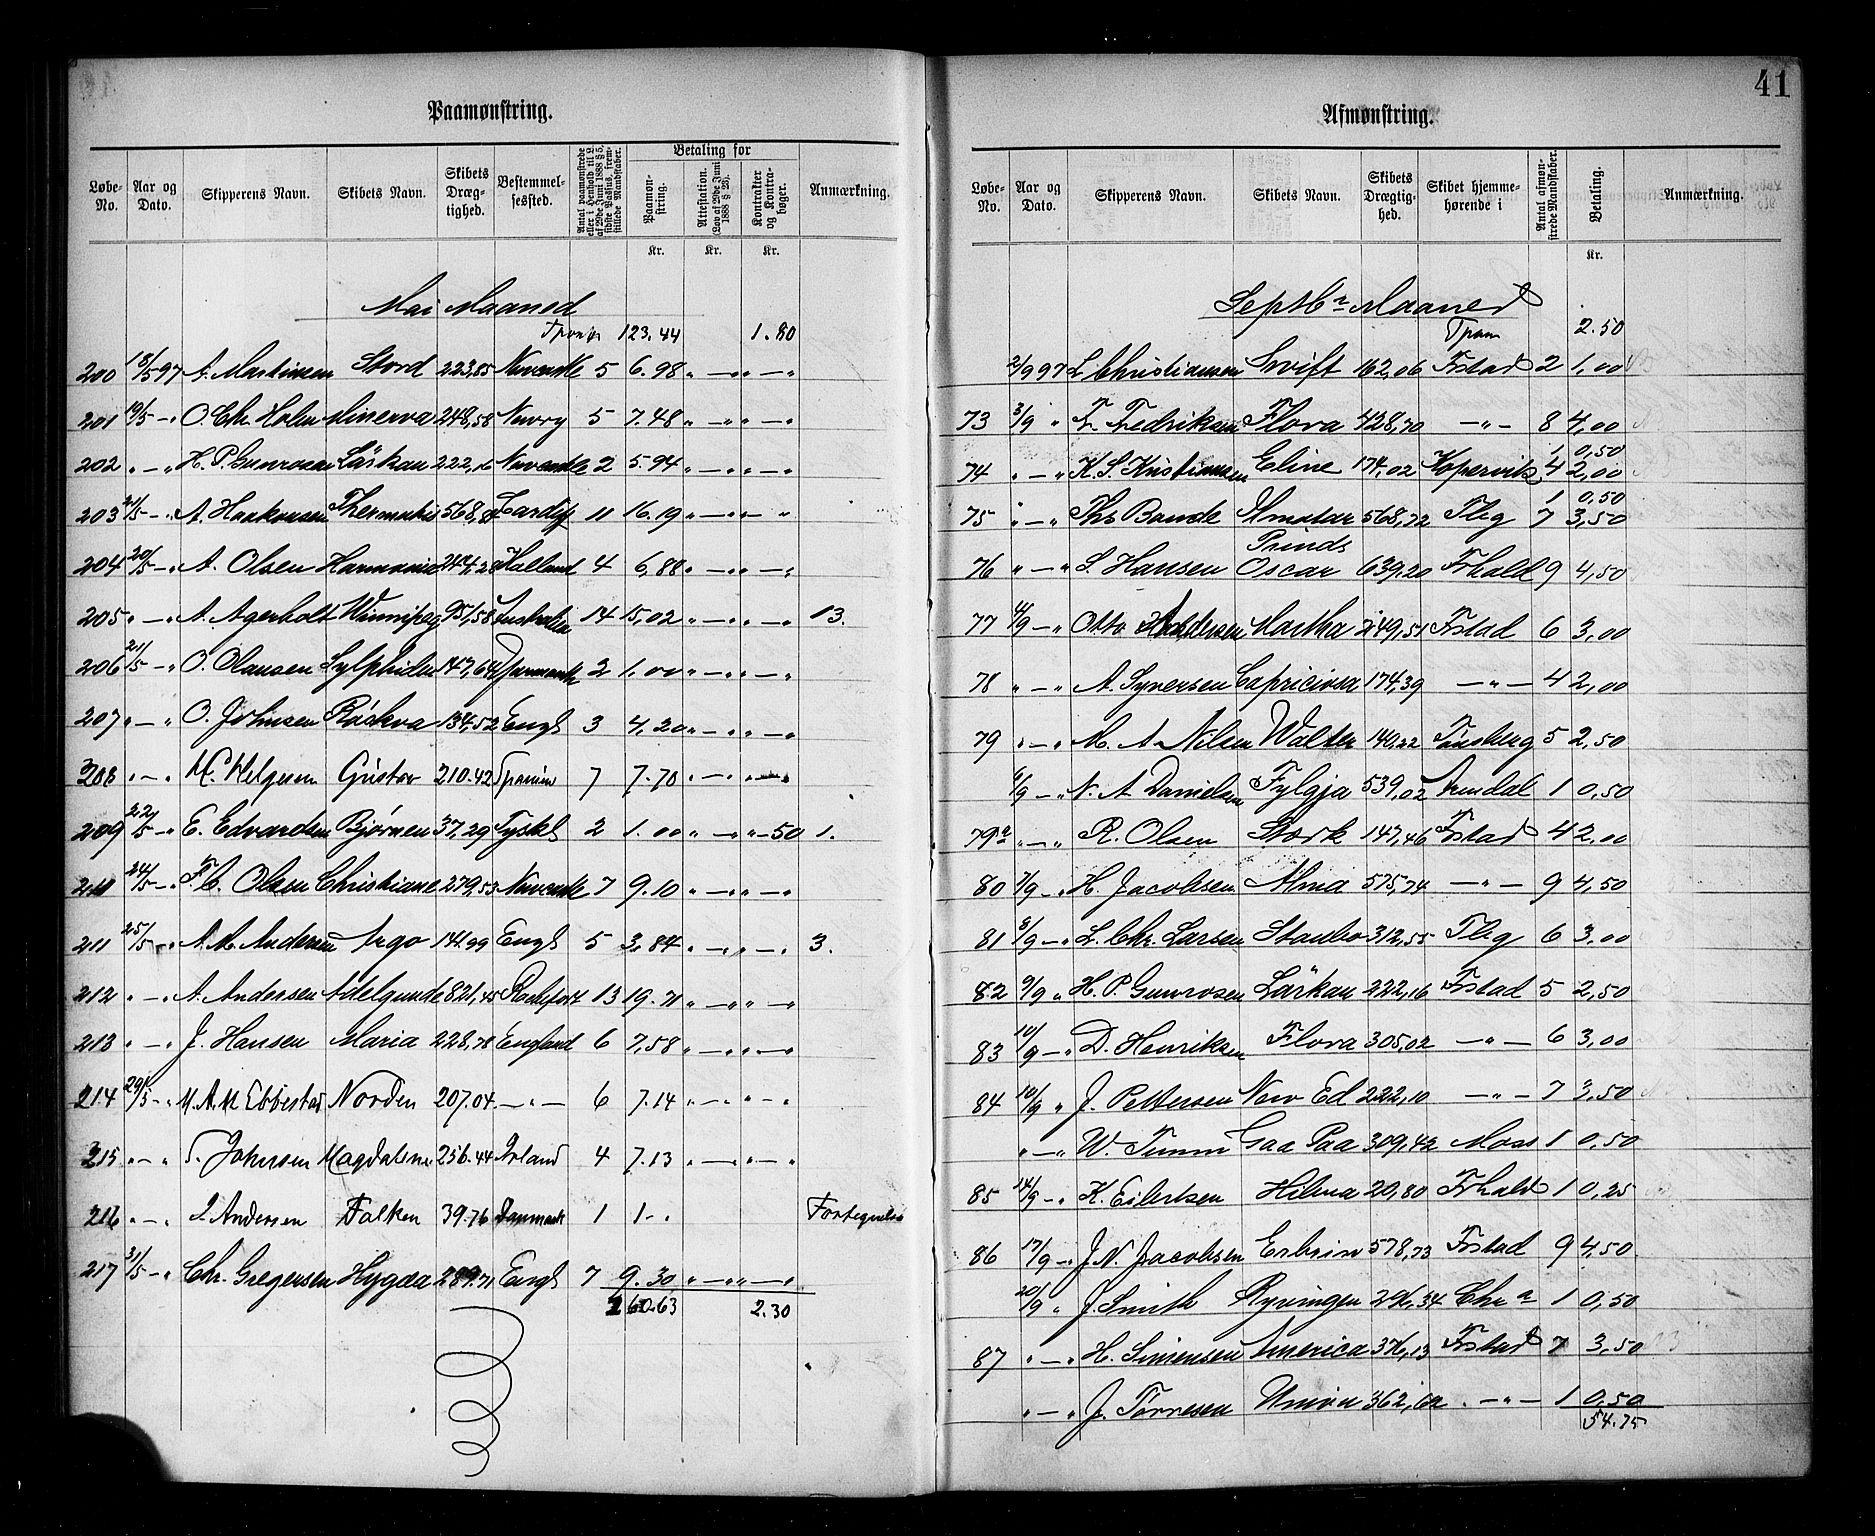 41
Paamønstring.
Løbe-No. Aar og Dato. Skipperens Navn. Skibets Navn. Skibets Dræg-tighed. Bestemmel-sessted. Antal paamønstrede eller i Henhold til L. af 29de Juni 1888 § 5, sidste Passus, frem-stillede Mandskaber. Betaling for Paamøn-string. Attestation. (Lov af 29de Juni 1888 § 28). Kontrakter og Kontra-bøger. Anmærkning.
Kr. Kr. Kr.
Mai Maaned
Tpport 123.44 1.80
200 18/5 97 A. Martinsen Stord 223,85 Newcastle 5 6.98 " — " " — "
201 19/5 — " O. Chr. Holm Minerva 248,58 Newry 5 7.48 " — " " — "
202 " — " H. P. Gunrosen Lärkan 222,16 Newcastle 2 5.94 " — " " — "
203 21/5 — " A. Haakonsen Thermutis 568,81 Cardiff 11 16.19 " — " " — "
204 20/5 — " A. Olsen Harmonia 244,28 Holland 4 6,88 " — " " — "
205 " — " A. Agerholt Winnipeg 951,58 Australien 14 15,02 " — " " — " 13.
206 21/5 — " O. Olaussen Sylphiden 147,64 Danmark 2 1.00 " — " " — "
207 " — " O. Johnsen Röskva 134,52 Engl 3 4,20 " — " " — "
208 " — " M. Helgesen Gustav 210.42 Spanien 7 7.70 " — " " — "
209 22/5 — " E. Edvardsen Bjørnen 37,29 Tyskl 2 1.00 " — " " — 50 1.
210 24/5 — " F. C. Olsen Christiane 279,53 Newcastle 7 9.10 " — " " — "
211 25/5 — " A. M. Andersen Argo 141,99 Engl 5 3,84 " — " " — " 3.
212 " — " A. Andersen Adelgunde 821,45 Rochefort 13 19.71 " — " " — "
213 " — " J. Hansen Maria 228,78 England 6 7,58 " — " " — "
214 29/5 — " M. A. M Ebbestad Norden 207.04 — " — 6 7.14 " — " " — "
215 " — " S. Johnsen Magdalene 256.44 Irland 4 7.13 " — " " — "
216 " — " Andersen Falken 39.76 Danmark 1 1 - . Fortegnelse
217 31/5 — " Chr. Gregersen Hygæa 289.71 Engl 7 9.30 " — " " — "
260.63 2.30
Afmønstring.
Løbe-No. Aar og Dato. Skipperens Navn. Skibets Navn. Skibets Drægtig-hed. Skibet hjemme-hørende i Antal afmøn-strede Mandskaber. Betaling. Anmærkning.
Kr.
Septbr Maaned
Tpport 2.50
2/9 97 L Christiansen Swift 162,06 Fstad 2 1,00
73 3/9 " Fr. Fredriksen Flora 428,70 — " — 8 4,00
1 0,50
74 " — " K. S. Kristiansen Eline 174,02 Kopervik 4 2,00
1 0,50
75 " — " Ths Bande Ymatar 568,72 Tbg 7 3,50
76 " — " S. Hansen Prinds Oscar 639,20 Frhald 9 4,50
77 4/9 — " Otto Andersen Martha 249,51 Fstad 6 3,00
78 " — " A. Syversen Capriciosa 174,39 — " — 4 2,00
79 " — " M. A. Nilsen Walter 140,22 Tønsberg 5 2,50
6/9 — " N. A. Danielsen Fylgja 539,02 Arendal 1 0,50
79a " — " R. Olsen Stærk 147,46 Fstad 4 2,00
80 7/9 — " H. Jacobsen Alma 575,74 — " — 9 4,50
81 8/9 — " L. Chr. Larsen Staubo 312,55 Tbg 6 3,00
82 9/9 " H. P. Gunrosen Lärkan 222,16 Fstad 5 2,50
83 10/9 — " D. Henriksen Flora 305,02 — " — 6 3,00
84 10/9 " J. Pettersen New Ed 222,10 — " — 7 3,50
" — " W. Timm Gaa Paa 309,42 Moss 1 0,50
85 14/9 — " K. Eilertsen Hilma 20,80 Frhald 1 0,25
86 17/9 — " J. N. Jacobsen Erbrin 578,73 Fstad 9 4,50
20/9 " J. Smith Ryvingen 296,34 Chra 1 0,50
87 " — " H. Simensen America 376,13 Fstad 7 3,50
" — " J. Tørresen Union 362,62 . — " — 1 0,50
54.75